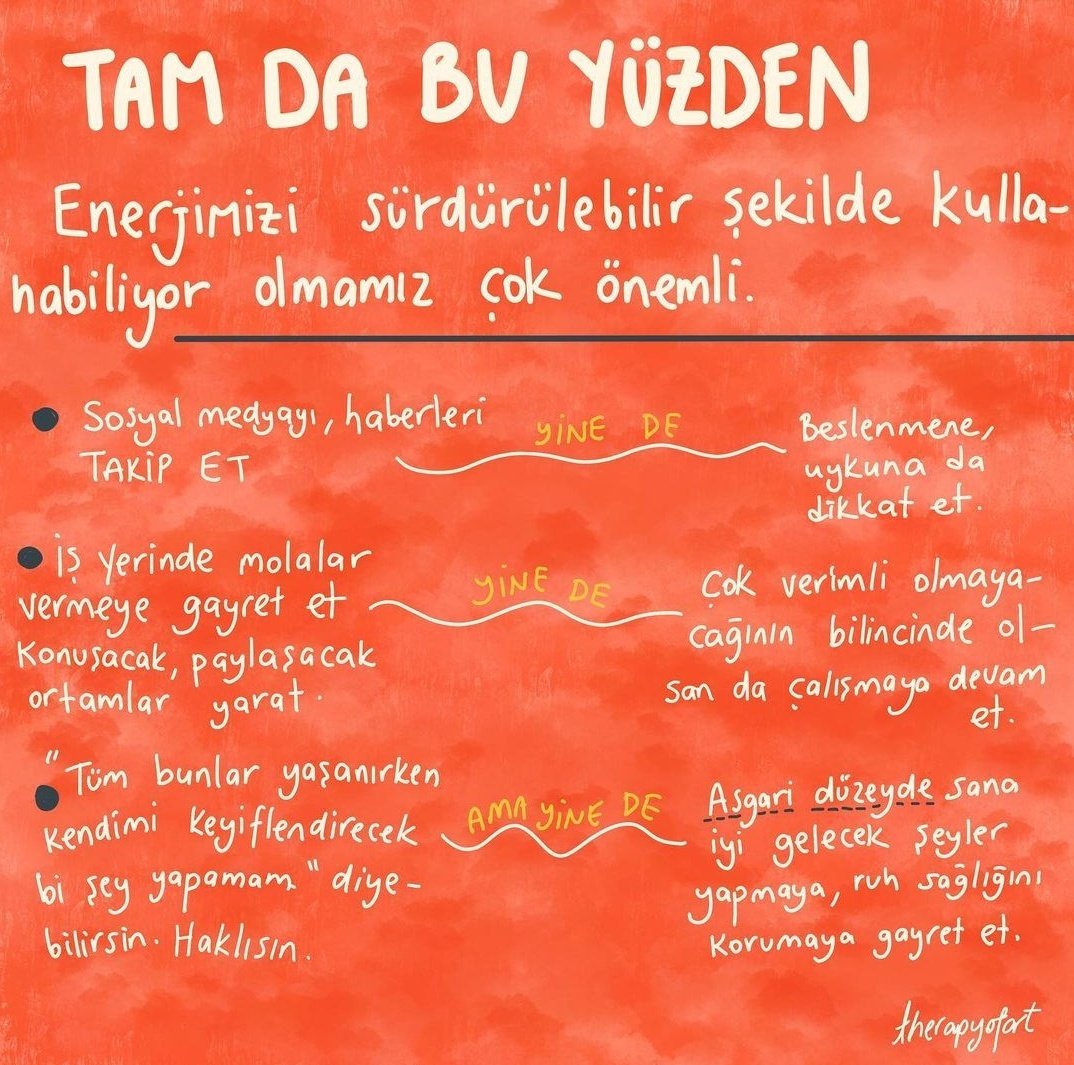 TAM DA BU YÜZDEN
Enerjimizi sürdürülebilir şekilde kulla-
nabiliyor olmamız çok önemli.
Sosyal medyayı, haberleri
TAKİP ET
YİNE DE
Beslenmene,
uykuna da
dikkat et.
İş yerinde molalar
vermeye gayret et
Konuşacak, paylaşacak
ortamlar yarat.
YİNE DE
Çok verimli olmaya-
cağının bilincinde ol-
san da çalışmaya devam
et.
"Tüm bunlar yaşanırken
kendimi keyiflendirecek
bi şey yapamam" diye-
bilirsin. Haklısın.
AMA YİNE DE
Asgari düzeyde sana
iyi gelecek şeyler
yapmaya, ruh sağlığını
korumaya gayret et.
therapyofart